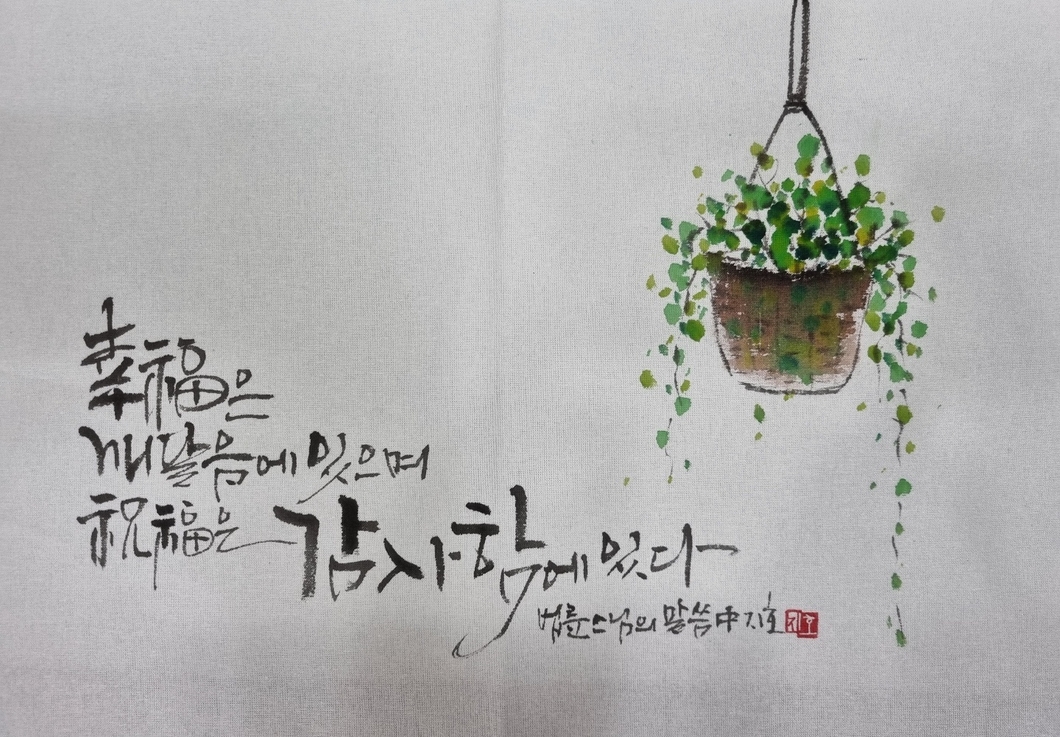 幸福은
깨달음에 있으며
祝福은 감사함에 있다
법륜스님의 말씀中 지호
지호